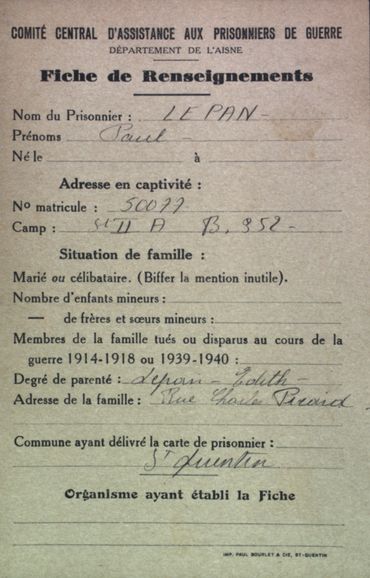 COMITÉ CENTRAL D'ASSISTANCE AUX PRISONNIERS DE GUERRE
DÉPARTEMENT DE L'AISNE
Fiche de Renseignements
Nom du Prisonnier : LEPAN -
Prénoms Paul -
Né le à
Adresse en captivité :
No matricule : 50077
Camp : St II A B. 952 -
Situation de famille :
Marié ou célibataire. (Biffer la mention inutile).
Nombre d'enfants mineurs :
— de frères et sœurs mineurs :
Membres de la famille tués ou disparus au cours de la
guerre 1914-1918 ou 1939-1940 :
Degré de parenté : Lepan - Edith -
Adresse de la famille : Rue Charles Picard -
Commune ayant délivré la carte de prisonnier :
St Quentin
Organisme ayant établi la Fiche
IMP. PAUL BOURLET & CIE, ST-QUENTIN